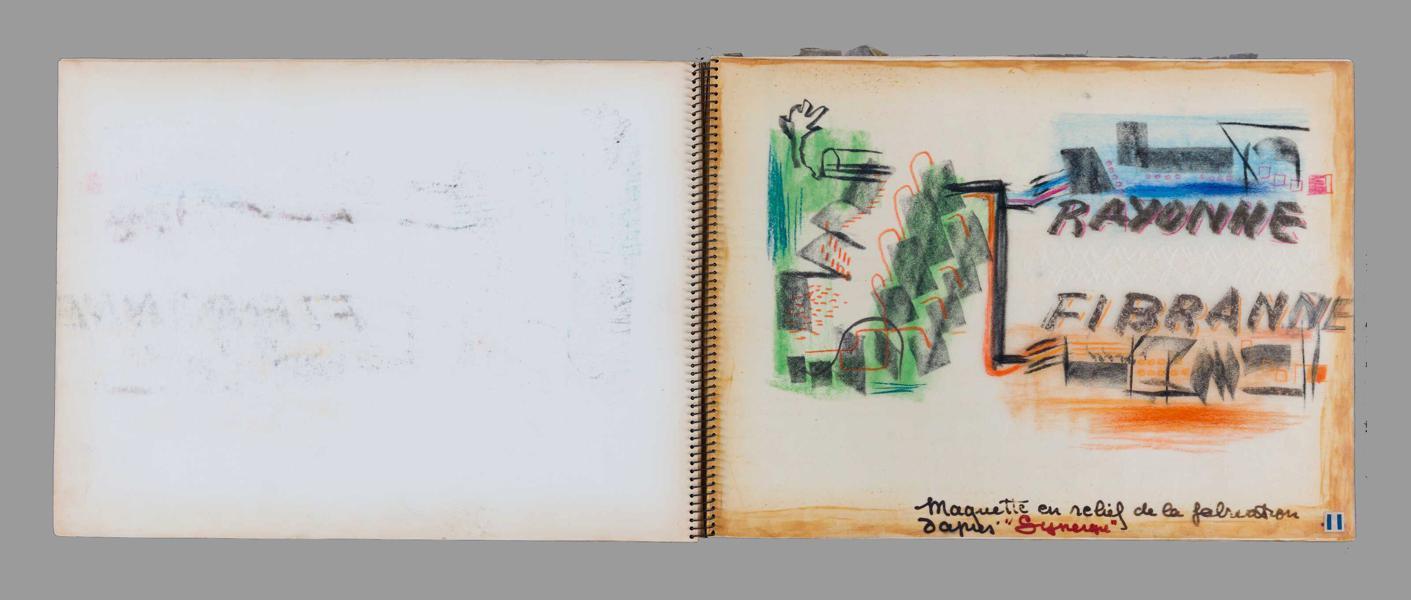 RAYONNE
FIBRANNE
Maquette en relief de la fabrication
Dapres "Synergie"
11